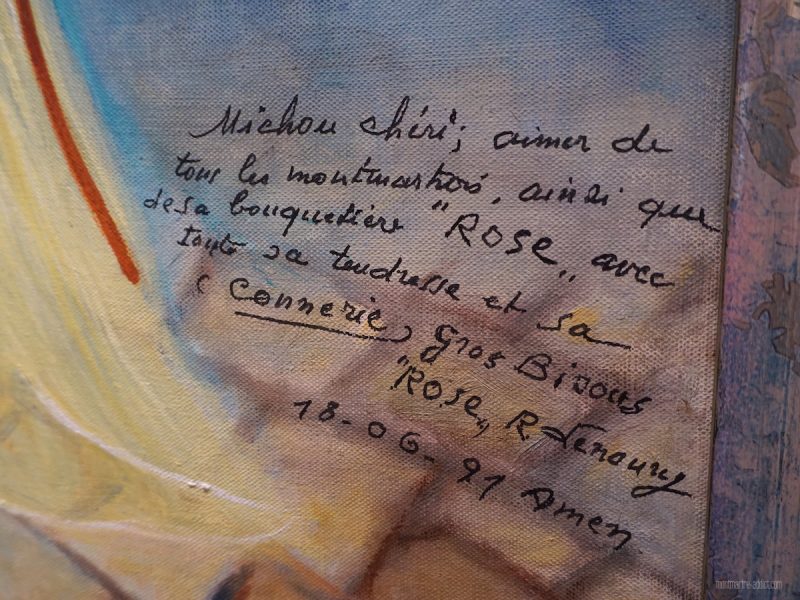 Michou chéri; aimer de
tous les montmartrois, ainsi que
de sa bouquetière "Rose" avec
toute sa tendresse et sa
(connerie) Gros Bisous
"Rose" R.
18-06-91 Amen
montmartre-addict.com